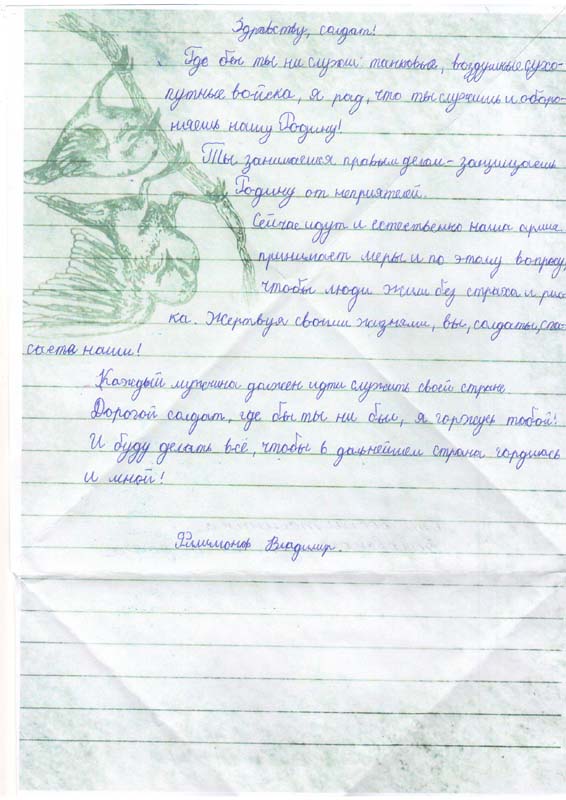 Здравству, солдат!
Где бы ты ни служил танковые, воздушные сухо-
путные войска, я рад, что ты служишь и оборо-
няешь нашу Родину!
Ты занимаешся правым делом - защищаешь
Родину от неприятелей.
Сейчас идут и естественно наша армия
принимает меры и по этому вопросу,
чтобы люди жили без страха и рис-
ка. Жертвуя своими жизнями, вы, солдаты, спа-
саете наши!
Каждый мужчина должен идти служить своей стране.
Дорогой солдат, где бы ты ни был, я горжусь тобой!
И буду делать всё, чтобы в дальнейшем страна гордилась
и мной!
Филимонов Владимир.